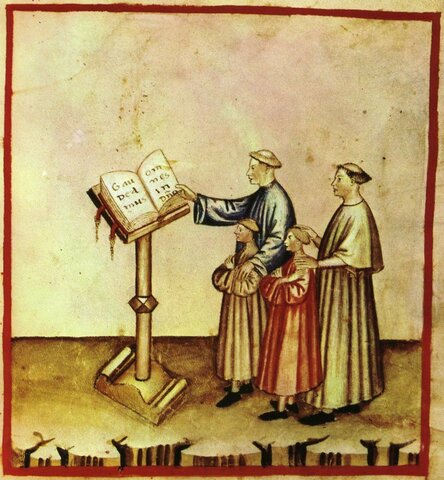 Gau
dea
mus
om
nes
in